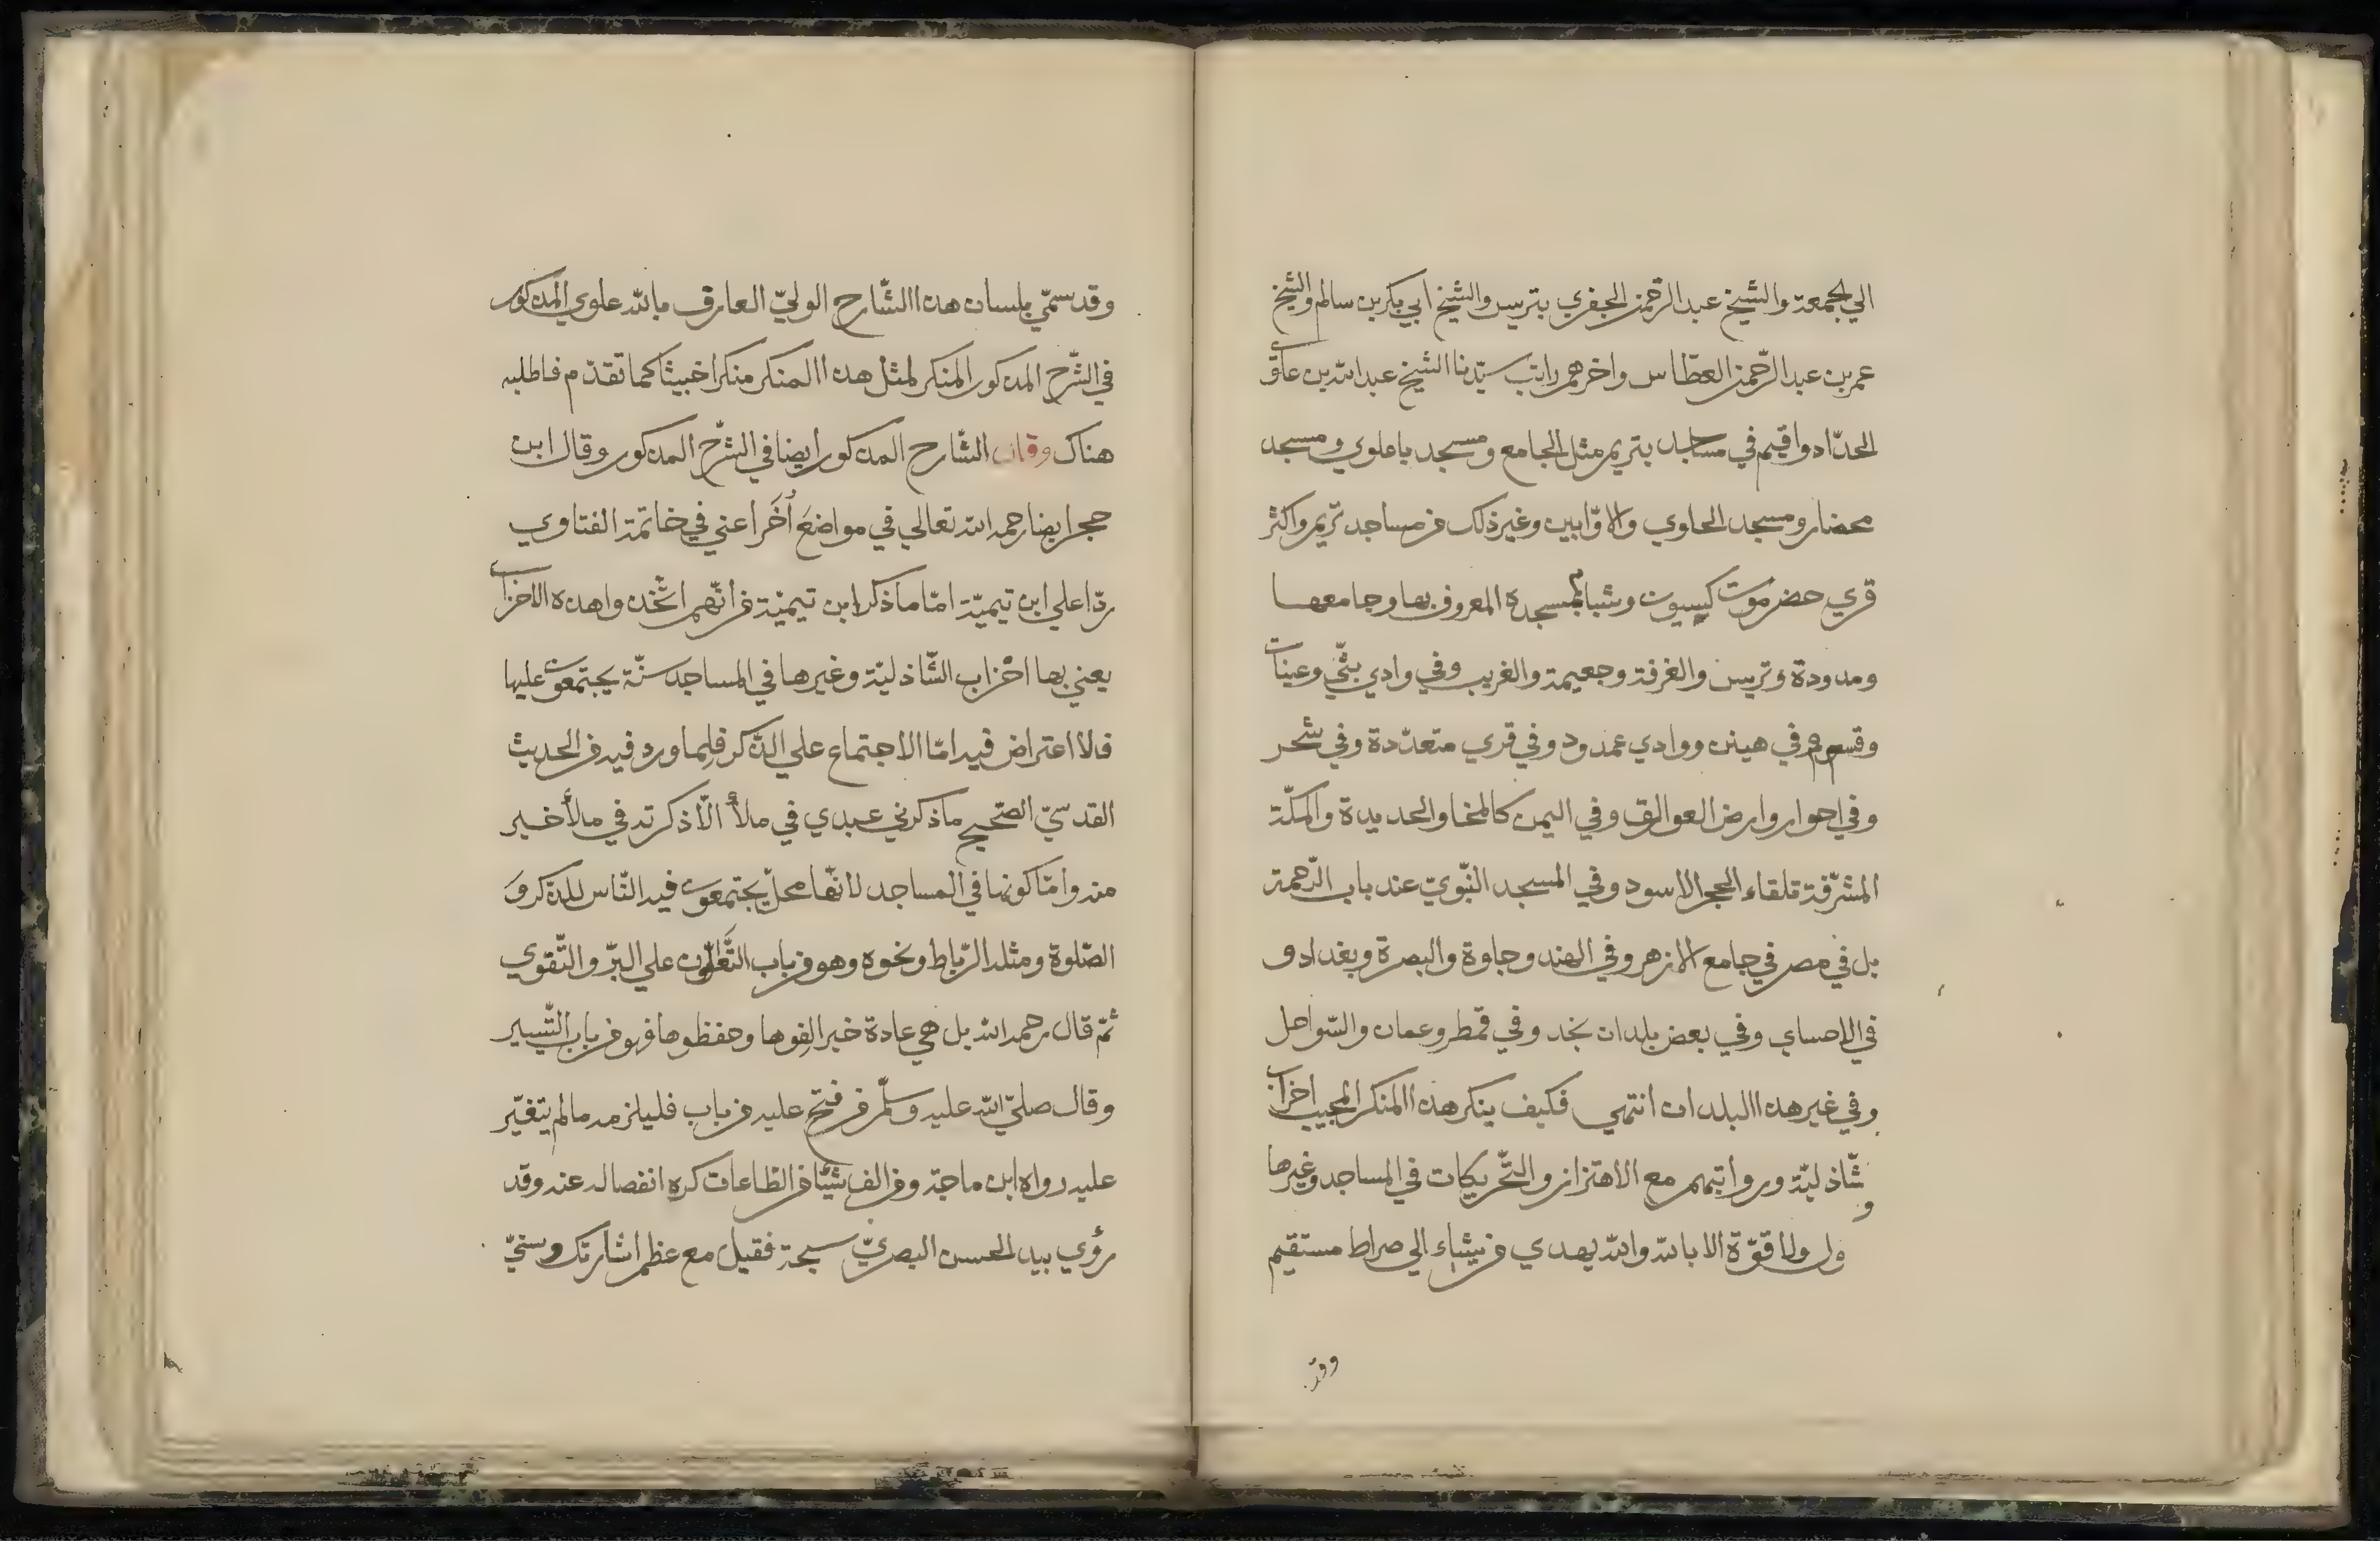 الي الجمعة والشيخ عبد الرحمن الجفري بتريس والشيخ ابي بكر بن سالم والشيخ
عمر بن عبد الرّحمن العطّاس واخرهم راتب سيّدنا الشيخ عبد الله بن علوي
الحدّاد واقيم في مساجد بتريم مثل الجامع ومسجد باعلوي ومسجد
محضار ومسجد الحاوي والاوّابين وغير ذلك من مساجد تريم واكثر
قري حضرموت كسيون وشبام بمسجده المعروف بها وجامعها
ومدودة وتريس والغرفة وجعيمة والغريب وفي وادي بثّي وعينات
وقسم وفي هينن ووادي عمد ود وفي قري متعدّدة وفي شحر
وفي احوار وارض العوالق وفي اليمن كالمخا والحديدة والمكّة
المشرّفة تلقاء الحجر الاسود وفي المسجد النّبويّ عند باب الرّحمة
بل في مصر في جامع الازهر وفي الهند وجاوة والبصرة وبغداد و
في الاحساي وفي بعض بلدان نجد وفي قمطر وعمان والسّواحل
وفي غير هذا البلدان انتهي فكيف ينكر هذا المنكر المجيب احزاب
شّاذليّة ورواتبهم مع الاهتزاز والتّحريكات في المساجد وغيرها
و
ول ولا قوّة الا بالله والله يهدي من يشاء الي صراط مستقيم
وقد
وقد سمّي بلسان هذا الشّارح الوليّ العارف بالله علوي المذكور
في الشّرح المذكور المنكر لمثل هذا المنكر منكرا خبيثا كما تقدّم فاطلبه
هناك وقال الشّارح المذكور أيضا في الشّرح المذكور وقال ابن
حجر ايضا رحمه الله تعالي في مواضعَ أُخَر اعني في خاتمة الفتاوي
ردّا علي ابن تيميّة امّا ما ذكر ابن تيميّة من أنّهم اتّخذوا هذه الاحزاب
يعني بها احْزاب الشّاذليّة وغيرها في المساجد سنّة يجتمعون عليها
فلا اعتراض فيه امّا الاجتماع علي الذّكر فلِما ورد فيه من الحديث
القدسيّ الصّحيح ما ذكرني عبدي في ملأ الّا ذكرته في ملأ خير
منه وامّا كونها في المساجد لانّها محلّ يجتمعون فيه النّاس للذّكر وَ
الصّلوة ومثله الرّباط ونحوه وهو من باب التّعاون علي البرّ والتّقوي
ثمّ قال رحمه الله بل هي عادة خير الِفوها وحفظوها فهو من باب التّيسير
وقال صلّي الله عليه وسلّم من فتح عليه من باب فليلزمه ما لم يتغيّر
عليه رواه ابن ماجة ومن الف شيئا من الطّاعات كره انفصاله عنه وقد
رؤي بيد الحسن البصريّ سبحة فقيل مع عظم اشارتك وسنيّ